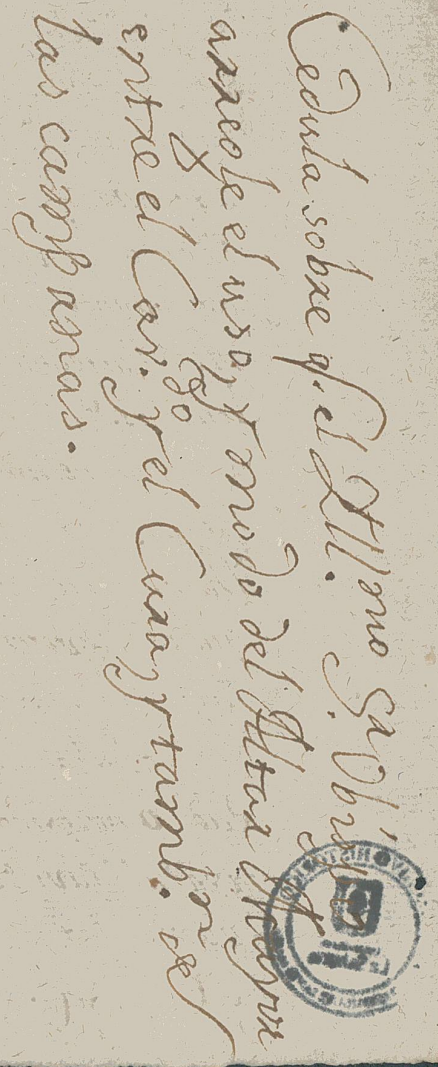 Cedula sobre q.e el Ill.mo S.r Obispo
arregle el uso, y modo del Altar Mayor
entre el Cav.do y el Cura, y tamb.n de
las campanas.